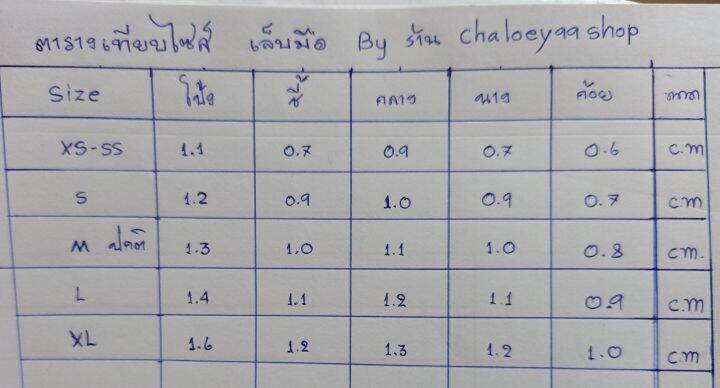 ตารางเทียบไซส์ เล็บมือ By ร้าน chaloeyaashop
Size โป้ง ชี้ กลาง นาง ก้อย
XS-SS 1.1 0.7 0.9 0.7 0.6 c.m
S 1.2 0.9 1.0 0.9 0.7 cm
M ปกติ 1.3 1.0 1.1 1.0 0.8 cm.
L 1.4 1.1 1.2 1.1 0.9 c.m
XL 1.6 1.2 1.3 1.2 1.0 c.m